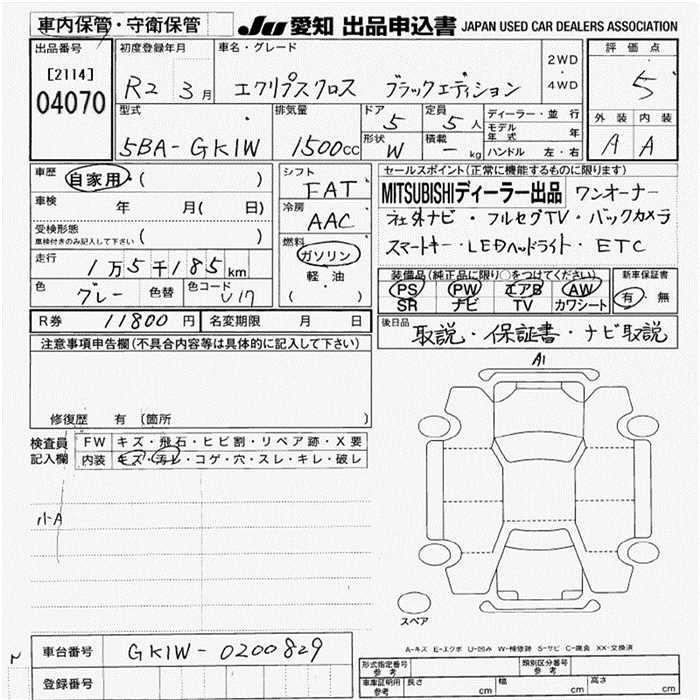 車内保管・守衛保管 JU 愛知 出品申込書 JAPAN USED CAR DEALERS ASSOCIATION
出品番号 初度登録年月 車名・グレード 2WD ・ 4WD 評価点
[2114] R2 3月 エクリプスクロス ブラックエディション 5
04070 型式 排気量 ドア 定員 ディーラー・並行 外装 内装
5BA-GK1W 1500cc 5 5人 モデル年式 年 A A
形状 W 積載 - kg ハンドル 左・右
車歴 自家用・( ) シフト FAT セールスポイント(正常に機能するものに限ります)
車検 年 月( 日) 冷房 AAC MITSUBISHIディーラー出品 ワンオーナー
受検形態 車検付きのみ記入して下さい ( ) 社外ナビ・フルセグTV・バックカメラ
走行 1万5千185km 燃料 ガソリン・軽・油 ( ) スマートキー・LEDヘッドライト・ETC
色 グレー 色替 色コード U17 装備品(純正品に限り○をつけてください) 新車保証書
PS PW エアB AW 有・無
SR ナビ TV カワシート
R券 11800円 名変期限 月 日 後日品 取説・保証書・ナビ取説
注意事項申告欄(不具合内容等は具体的に記入して下さい)
A1
修復歴 有 (箇所 )
検査員記入欄 FW キズ・飛石・ヒビ割・リペア跡・X要
内装 キズ・汚レ・コゲ・穴・スレ・キレ・破レ
小A
スペア
A-キズ E-エクボ U-凹み W-補修跡 S-サビ C-腐食 XX-交換済
車台番号 GK1W-0200829
登録番号
形式指定番号 参考 類別区分番号 参考
車庫証明用 参考 長さ cm 幅 cm 高さ cm